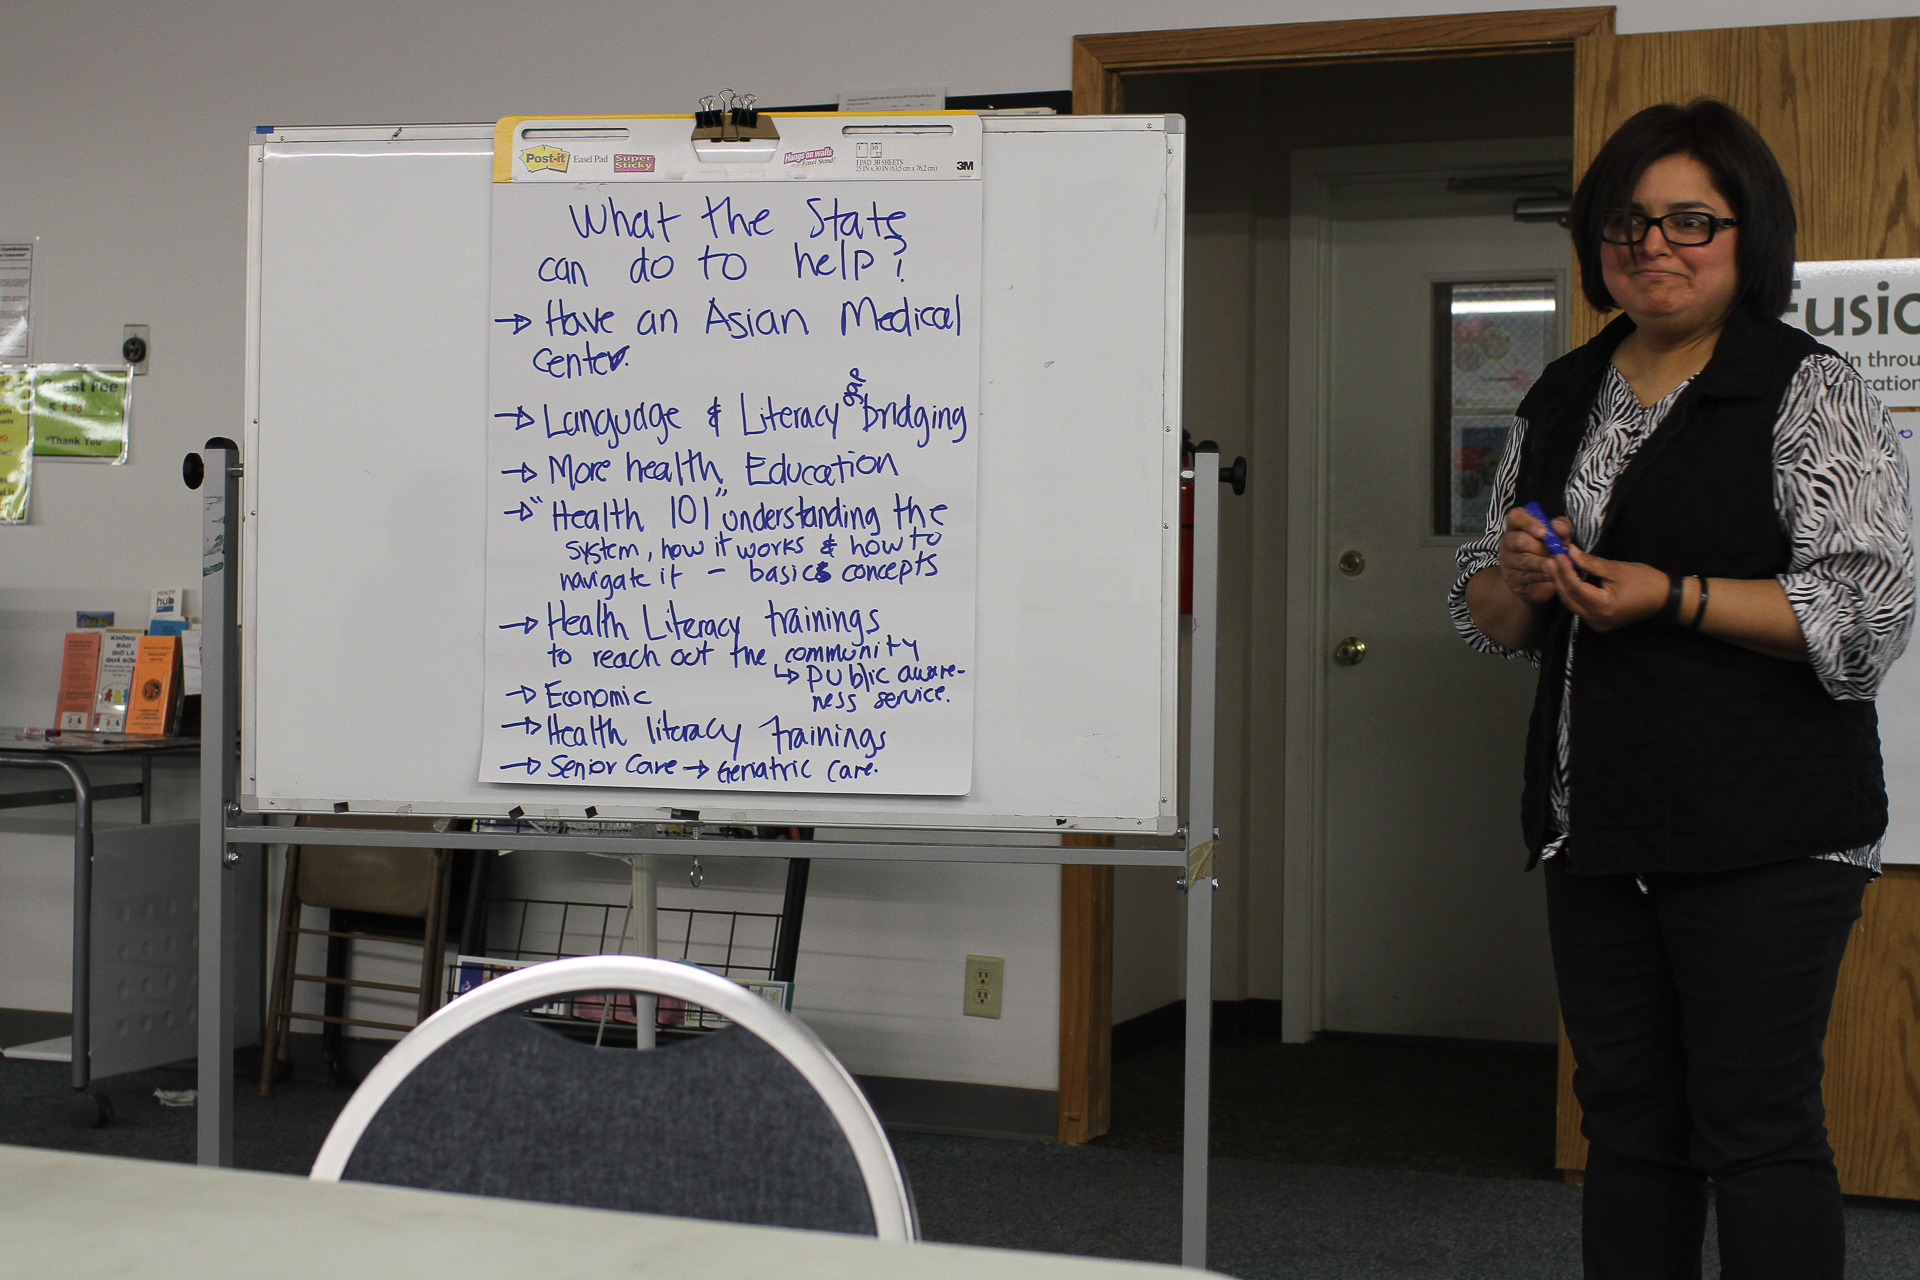 Post-it Easel Pad Super Sticky Hangs on walls 3M
1 PAD, 30 SHEETS
25 IN x 30 IN (63,5 cm x 76,2 cm)
What the State
can do to help?
→ Have an Asian Medical
Center.
→ Language & Literacy gap bridging
→ More health Education
→ "Health 101" understanding the
system, how it works & how to
navigate it - basics concepts
→ Health Literacy trainings
to reach out the community
↳ public aware-
ness service.
→ Economic
→ Health literacy trainings
→ Senior Care → Geriatric Care.
"Thank You"
HEALTH
hub
KHÔNG
BAO
GIỜ LÀ
QUÁ SỚM
Fusio
In throu
cation